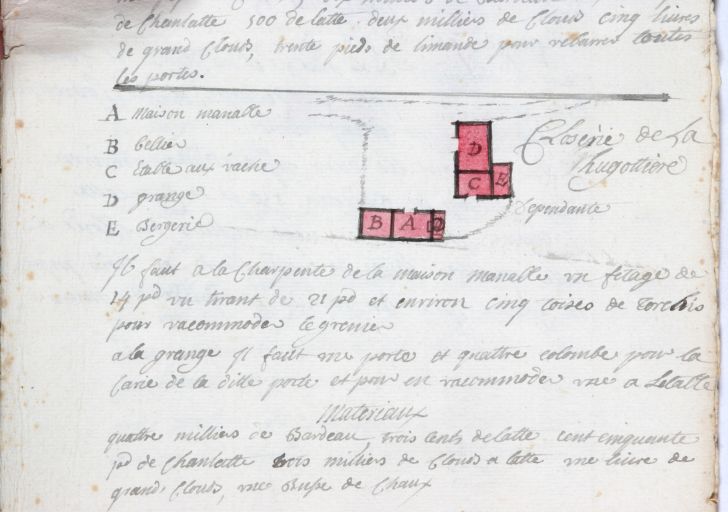 de Chanlatte 500 de latte deux milliers de Clouds cinq livres
de grand Clouds, trente pieds de limande pour rebarrer toutes
les portes.
A Maison manalle
B Cellier
C Etable aux vache
D grange
E Bergerie
D
C E
B A
Closerie de La
hugottiere
Dependante
Il faut a la Charpente de la maison manalle un fetage de
14 pd un tirant de 21 pd et environ cinq toises de torchis
pour racommoder le grenier
a la grange Il faut une porte et quattre colombe pour la
carie de la ditte porte et pour en racommoder une a Letable
Materiaux
quattre milliers de Bardeau, trois Cents de latte Cent cinquante
pd de Chanlatte trois milliers de Clouds a latte une livre de
grand Clouds, une Buse de Chaux